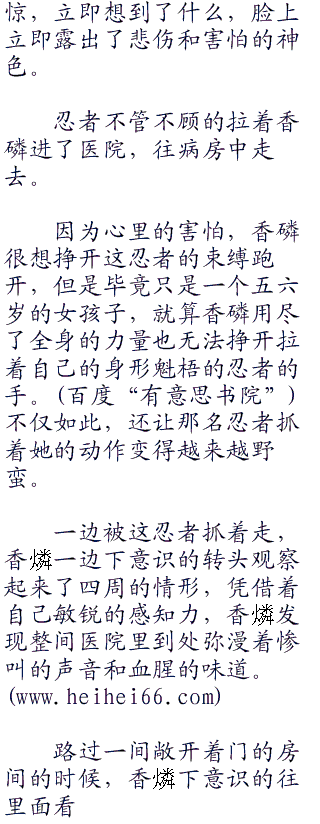 惊，立即想到了什么，脸上
立即露出了悲伤和害怕的神
色。
忍者不管不顾的拉着香
磷进了医院，往病房中走
去。
因为心里的害怕，香磷
很想挣开这忍者的束缚跑
开，但是毕竟只是一个五六
岁的女孩子，就算香磷用尽
了全身的力量也无法挣开拉
着自己的身形魁梧的忍者的
手。(百度“有意思书院”)
不仅如此，还让那名忍者抓
着她的动作变得越来越野
蛮。
一边被这忍者抓着走，
香燐一边下意识的转头观察
起来了四周的情形，凭借着
自己敏锐的感知力，香燐发
现整间医院里到处弥漫着惨
叫的声音和血腥的味道。
(www.heihei66.com)
路过一间敞开着门的房
间的时候，香燐下意识的往
里面看